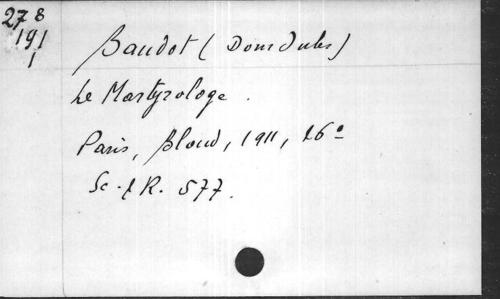 278
191
1
Baudot (Dom Jules)
Le Martyrologe.
Paris, Bloud, 1911, 16º
Sc. & R. 577.